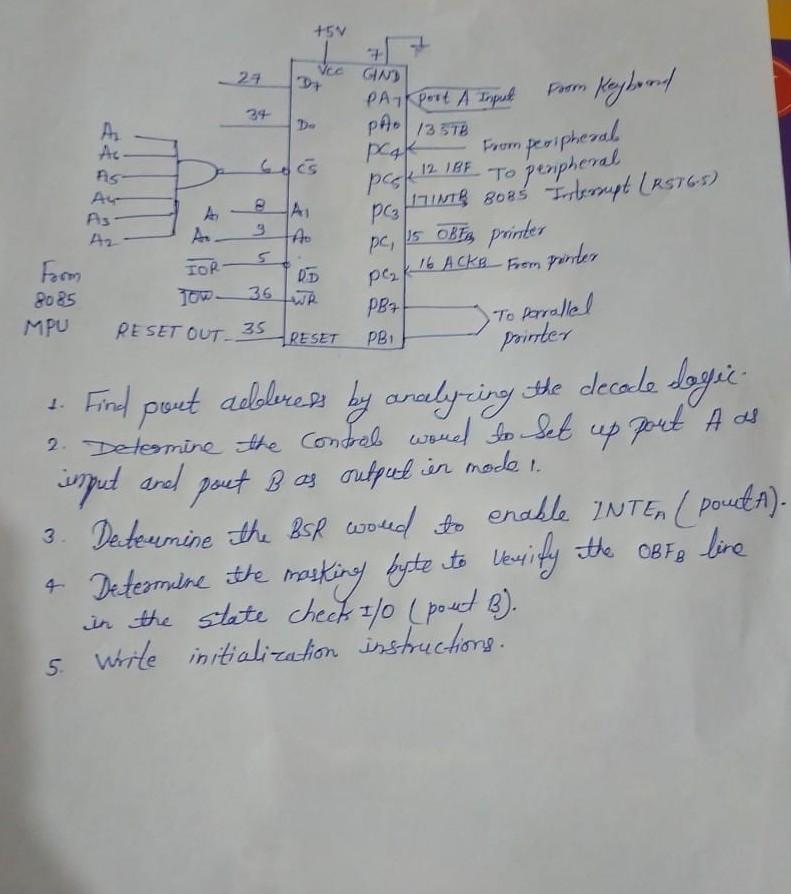 +5V
7
Vcc GND
27 D7
PA7 Port A Input From Keyboard
34 D0
PA0 13 STB
A2
A6
A5
A4
A3
A2
6 CS
PC4 From peripheral
PC5 12 IBF To peripheral
PC3 17 INTR 8085 Interrupt (RST6.5)
A1 8 A1
A0 9 A0
PC1 15 OBFB printer
IOR 5 RD
PC2 16 ACKB From printer
From
8085
MPU
IOW 36 WR
PB7
To Parrallel
printer
RESET OUT 35 RESET PB1
1. Find port address by analyzing the decode logic.
2. Determine the Control word to Set up port A as
input and port B as output in mode 1.
3. Determine the BSR word to enable INTEA (port A).
4 Determine the masking byte to verify the OBFB line
in the state check I/O (port B).
5. Write initialization instructions.